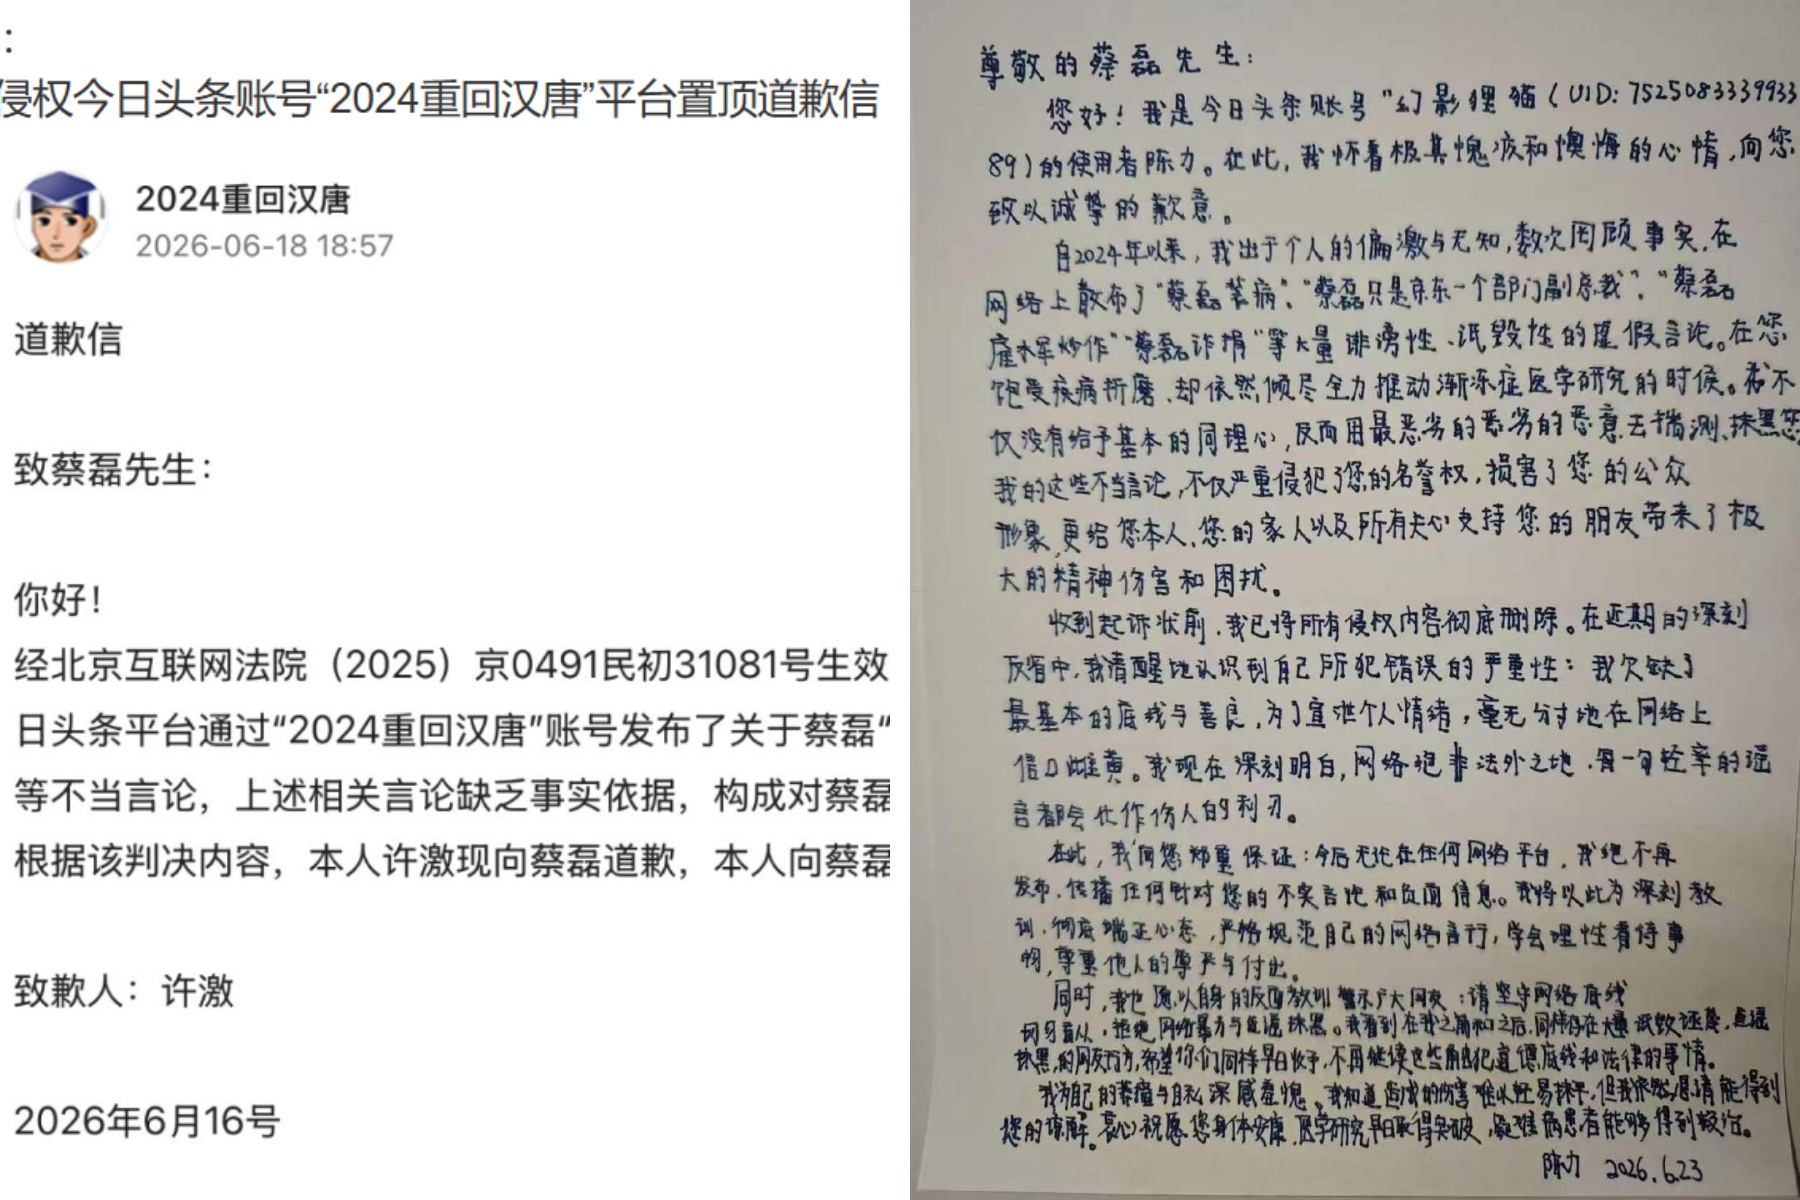 ：
侵权今日头条账号“2024重回汉唐”平台置顶道歉信
2024重回汉唐
2026-06-18 18:57
道歉信
致蔡磊先生：
你好！
经北京互联网法院（2025）京0491民初31081号生效
日头条平台通过“2024重回汉唐”账号发布了关于蔡磊“
等不当言论，上述相关言论缺乏事实依据，构成对蔡磊
根据该判决内容，本人许激现向蔡磊道歉，本人向蔡磊
致歉人：许激
2026年6月16号
尊敬的蔡磊先生：
您好！我是今日头条账号“幻影狸猫（UID：7525083339933
89）的使用者陈力。在此，我怀着极其愧疚和懊悔的心情，向您
致以诚挚的歉意。
自2024年以来，我出于个人的偏激与无知，数次罔顾事实，在
网络上散布了“蔡磊装病”、“蔡磊只是京东一个部门副总裁”、“蔡磊
雇水军炒作”“蔡磊诈捐”等大量诽谤性、诋毁性的虚假言论。在您
饱受疾病折磨、却依然倾尽全力推动渐冻症医学研究的时候。我不
仅没有给予基本的同理心，反而用最恶劣的恶劣的恶意去揣测、抹黑您
我的这些不当言论，不仅严重侵犯了您的名誉权，损害了您的公众
形象，更给您本人、您的家人以及所有关心支持您的朋友带来了极
大的精神伤害和困扰。
收到起诉状前，我已将所有侵权内容彻底删除。在近期的深刻
反省中，我清醒地认识到自己所犯错误的严重性：我欠缺了
最基本的底线与善良，为了宣泄个人情绪，毫无分寸地在网络上
信口雌黄。我现在深刻明白，网络绝非法外之地，每一句轻率的谣
言都会化作伤人的利刃。
在此，我向您郑重保证：今后无论在任何网络平台，我绝不再
发布、传播任何针对您的不实言论和负面信息。我将以此为深刻教
训，彻底端正心态，严格规范自己的网络言行，学会理性看待事
物，尊重他人的尊严与付出。
同时，我也愿以自身的反面教训警示广大网友：请坚守网络底线
切勿盲从，拒绝网络暴力与造谣抹黑。我看到在我之前和之后，同样存在大量诋毁诬蔑，造谣
抹黑的网友，希望你们同样早日收手，不再继续这些触犯道德底线和法律的事情。
我为自己的莽撞与自私深感羞愧。我知道造成的伤害难以轻易抹平，但我依然恳请能得到
您的谅解。衷心祝愿您身体安康，医学研究早日取得突破，疑难病患者能够得到救治。
陈力 2026.6.23